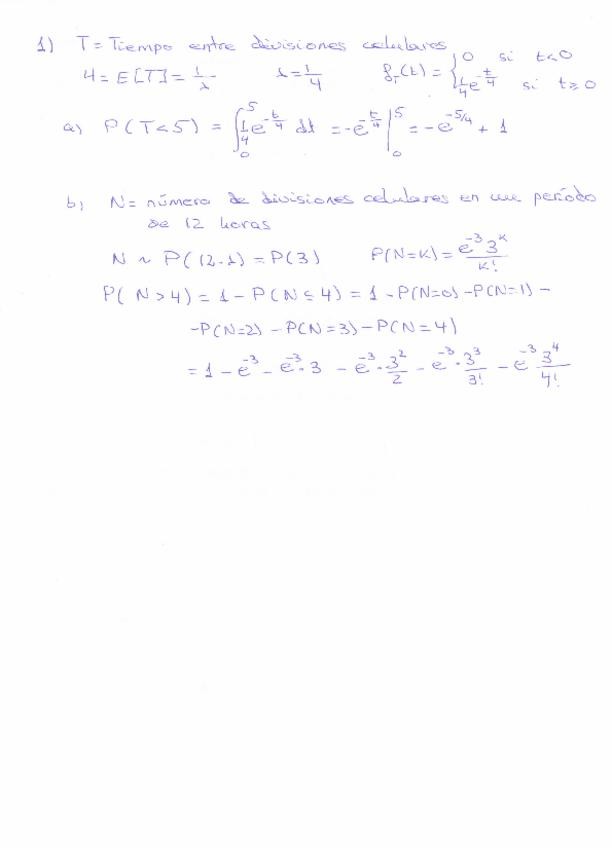 1) T = Tiempo entre divisiones celulares
4 = E[T] = 1/λ   λ = 1/4   f_T(t) = { 0 si t<0
1/4 e^{-t/4} si t≥0
a) P(T<5) = ∫_0^5 1/4 e^{-t/4} dt = -e^{-t/4} |_0^5 = -e^{-5/4} + 1
b) N = número de divisiones celulares en un período
de 12 horas
N ~ P(12·λ) = P(3)   P(N=k) = e^{-3} 3^k / k!
P(N>4) = 1 - P(N≤4) = 1 - P(N=0) - P(N=1) -
- P(N=2) - P(N=3) - P(N=4)
= 1 - e^{-3} - e^{-3}·3 - e^{-3}·3^2/2 - e^{-3}·3^3/3! - e^{-3} 3^4/4!